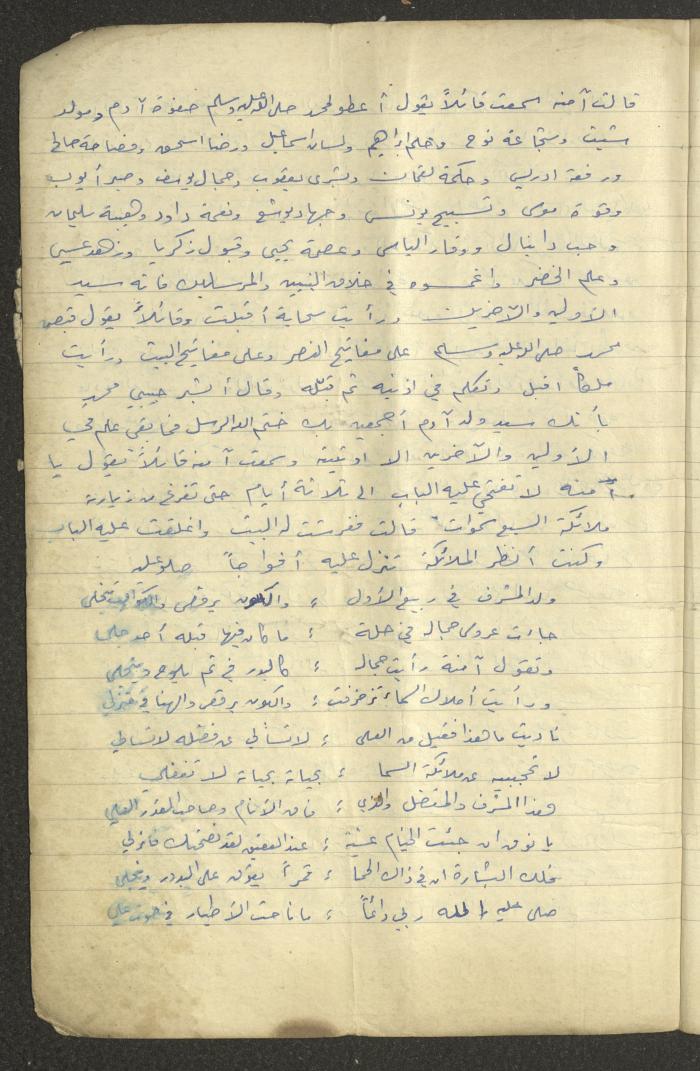 قالت آمنه سمعت قائلاً يقول أعطو لمحمد صلى الله عليه وسلم صفوة آدم ومولد
شيت وشجاعة نوح وحلم إبراهيم ولسان اسماعيل ورضا اسحق وفصاحة صالح
ورفعة ادريس وحكمة لقمان وبشرى يعقوب وجمال يوسف وصبر أيوب
وقوة موسى وتسبيح يونس وجهاد يوشع ونغمة داود وهيبة سليمان
وحب دانيال ووقار الياس وعصمة يحيى وقبول زكريا وزهد عيسى
وعلم الخضر واغمسوه في خلاق النبيين والمرسلين فانه سيد
الأولين والآخرين ورأيت سحابة أقبلت وقائلاً يقول قبض
محمد صلى الله عليه وسلم على مفاتيح النصر وعلى مفاتيح البيت ورأيت
ملكاً اقبل وتكلم في اذنيه ثم قبّله وقال أبشر حبيبي محمد
بأنك سيد ولد آدم أجمعين بك ختم الله الرسل فما بقي علم في
الأولين والآخرين الا اوتيته وسمعت آمنه قائلاً يقول يا
آمنه لا تفتحي عليه الباب الى ثلاثة أيام حتى تفرغ من زيارته
ملائكة السبع سموات قالت ففرشت له البيت واغلقت عليه الباب
وكنت أنظر الملائكة تنزل عليه أفواجاً صلو عليه
ولد المشرف في ربيع الأول ؛ والكون يرقص والكواكب تنجلي
جاءت عروس جماله في حلة ؛ ما كان فيها قبله أحد جلي
وتقول آمنة رأيت جماله ؛ كالبدر في تم يلوح وينجلي
ورأيت أملاك السماء تزخرفت ؛ والكون يرقص والهنا في منزلي
ناديت ما هذا فقيل من العلى ؛ لا تسألي عن فضله لا تسالي
لا تحجبيه عن ملائكة السما ؛ بحياته بحياته لا تغفلي
هذا المشرف والمفضل والذي ؛ فاق الأنام وصاحب القدر العلي
يا نوق ان جئت الخيام عشية ؛ عند العقيق لقد نصحتك فانزلي
فلك البشارة ان في ذاك الحما ؛ قمراً يفوق على البدور وينجلي
صلى عليه الله ربي دائماً ؛ ما ناحت الأطيار في صوت علي